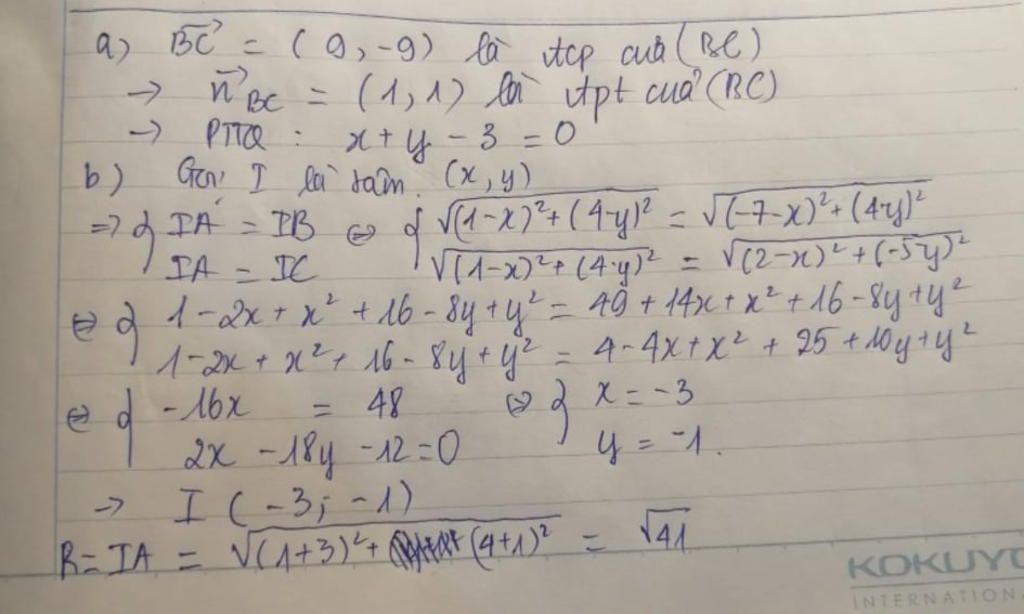 a) BC→ = (9, -9) là vtcp của (BC)
→ n→BC = (1, 1) là vtpt của (BC)
→ PTTQ : x + y - 3 = 0
b) Gọi I là tâm. (x, y)
=> { IA = IB ⇔ { √((1-x)²+(4-y)²) = √((-7-x)²+(4-y)²)
IA = IC √((1-x)²+(4-y)²) = √((2-x)²+(-5-y)²)
⇔ { 1 - 2x + x² + 16 - 8y + y² = 49 + 14x + x² + 16 - 8y + y²
1 - 2x + x² + 16 - 8y + y² = 4 - 4x + x² + 25 + 10y + y²
⇔ { -16x = 48 ⇔ { x = -3
2x - 18y - 12 = 0 y = -1.
→ I (-3; -1)
R = IA = √((1+3)² + (4+1)²) = √41
KOKUYO
INTERNATION